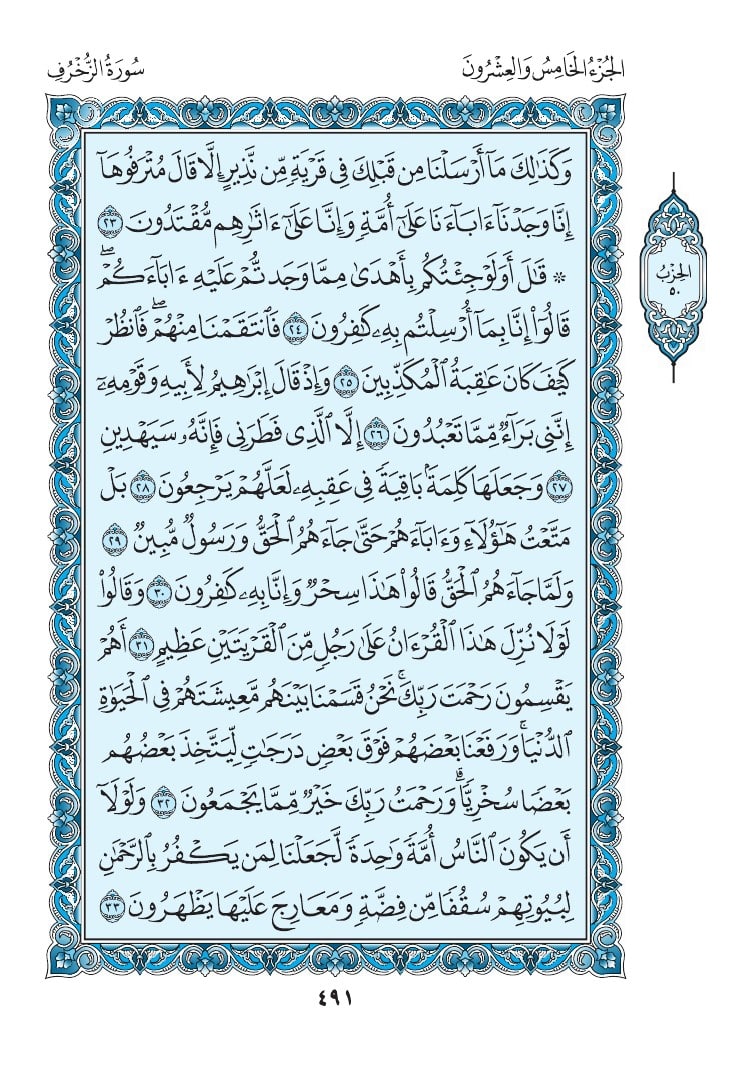 الجُزْءُ الخَامِسُ وَالعِشْرُونَ
سُورَةُ الزُّخْرُفِ
وَكَذَٰلِكَ مَآ أَرْسَلْنَا مِن قَبْلِكَ فِي قَرْيَةٍ مِّن نَّذِيرٍ إِلَّا قَالَ مُتْرَفُوهَآ
إِنَّا وَجَدْنَآ ءَابَآءَنَا عَلَىٰٓ أُمَّةٍ وَإِنَّا عَلَىٰٓ ءَاثَٰرِهِم مُّقْتَدُونَ ٢٣
۞ قَٰلَ أَوَلَوْ جِئْتُكُم بِأَهْدَىٰ مِمَّا وَجَدتُّمْ عَلَيْهِ ءَابَآءَكُمْۖ
قَالُوٓاْ إِنَّا بِمَآ أُرْسِلْتُم بِهِۦ كَٰفِرُونَ ٢٤ فَٱنتَقَمْنَا مِنْهُمْۖ فَٱنظُرْ
كَيْفَ كَانَ عَٰقِبَةُ ٱلْمُكَذِّبِينَ ٢٥ وَإِذْ قَالَ إِبْرَٰهِيمُ لِأَبِيهِ وَقَوْمِهِۦٓ
إِنَّنِي بَرَآءٌ مِّمَّا تَعْبُدُونَ ٢٦ إِلَّا ٱلَّذِي فَطَرَنِي فَإِنَّهُۥ سَيَهْدِينِ
٢٧ وَجَعَلَهَا كَلِمَةَۢ بَاقِيَةً فِي عَقِبِهِۦ لَعَلَّهُمْ يَرْجِعُونَ ٢٨ بَلْ
مَتَّعْتُ هَٰٓؤُلَآءِ وَءَابَآءَهُمْ حَتَّىٰ جَآءَهُمُ ٱلْحَقُّ وَرَسُولٌ مُّبِينٌ ٢٩
وَلَمَّا جَآءَهُمُ ٱلْحَقُّ قَالُواْ هَٰذَا سِحْرٌ وَإِنَّا بِهِۦ كَٰفِرُونَ ٣٠ وَقَالُواْ
لَوْلَا نُزِّلَ هَٰذَا ٱلْقُرْءَانُ عَلَىٰ رَجُلٍ مِّنَ ٱلْقَرْيَتَيْنِ عَظِيمٍ ٣١ أَهُمْ
يَقْسِمُونَ رَحْمَتَ رَبِّكَۚ نَحْنُ قَسَمْنَا بَيْنَهُم مَّعِيشَتَهُمْ فِي ٱلْحَيَوٰةِ
ٱلدُّنْيَاۚ وَرَفَعْنَا بَعْضَهُمْ فَوْقَ بَعْضٍ دَرَجَٰتٍ لِّيَتَّخِذَ بَعْضُهُم
بَعْضًا سُخْرِيًّاۗ وَرَحْمَتُ رَبِّكَ خَيْرٌ مِّمَّا يَجْمَعُونَ ٣٢ وَلَوْلَآ
أَن يَكُونَ ٱلنَّاسُ أُمَّةً وَٰحِدَةً لَّجَعَلْنَا لِمَن يَكْفُرُ بِٱلرَّحْمَٰنِ
لِبُيُوتِهِمْ سُقُفًا مِّن فِضَّةٍ وَمَعَارِجَ عَلَيْهَا يَظْهَرُونَ ٣٣
الحِزْبُ
٥٠
٤٩١